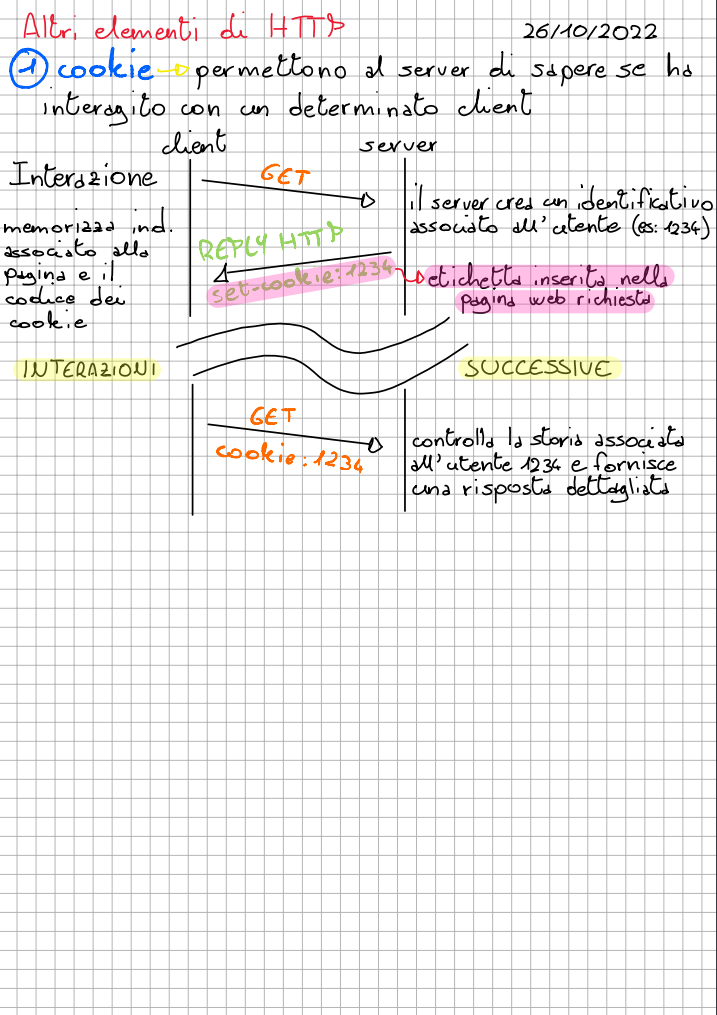 Altri elementi di HTTP 26/10/2022
1 cookie → permettono al server di sapere se ha
interagito con un determinato client
client server
Interazione
GET
il server crea un identificativo
associato all'utente (es: 1234)
memorizza ind.
associato alla
pagina e il
codice dei
cookie
REPLY HTTP
set-cookie: 1234
etichetta inserita nella
pagina web richiesta
INTERAZIONI SUCCESSIVE
GET
cookie: 1234
controlla la storia associata
all'utente 1234 e fornisce
una risposta dettagliata